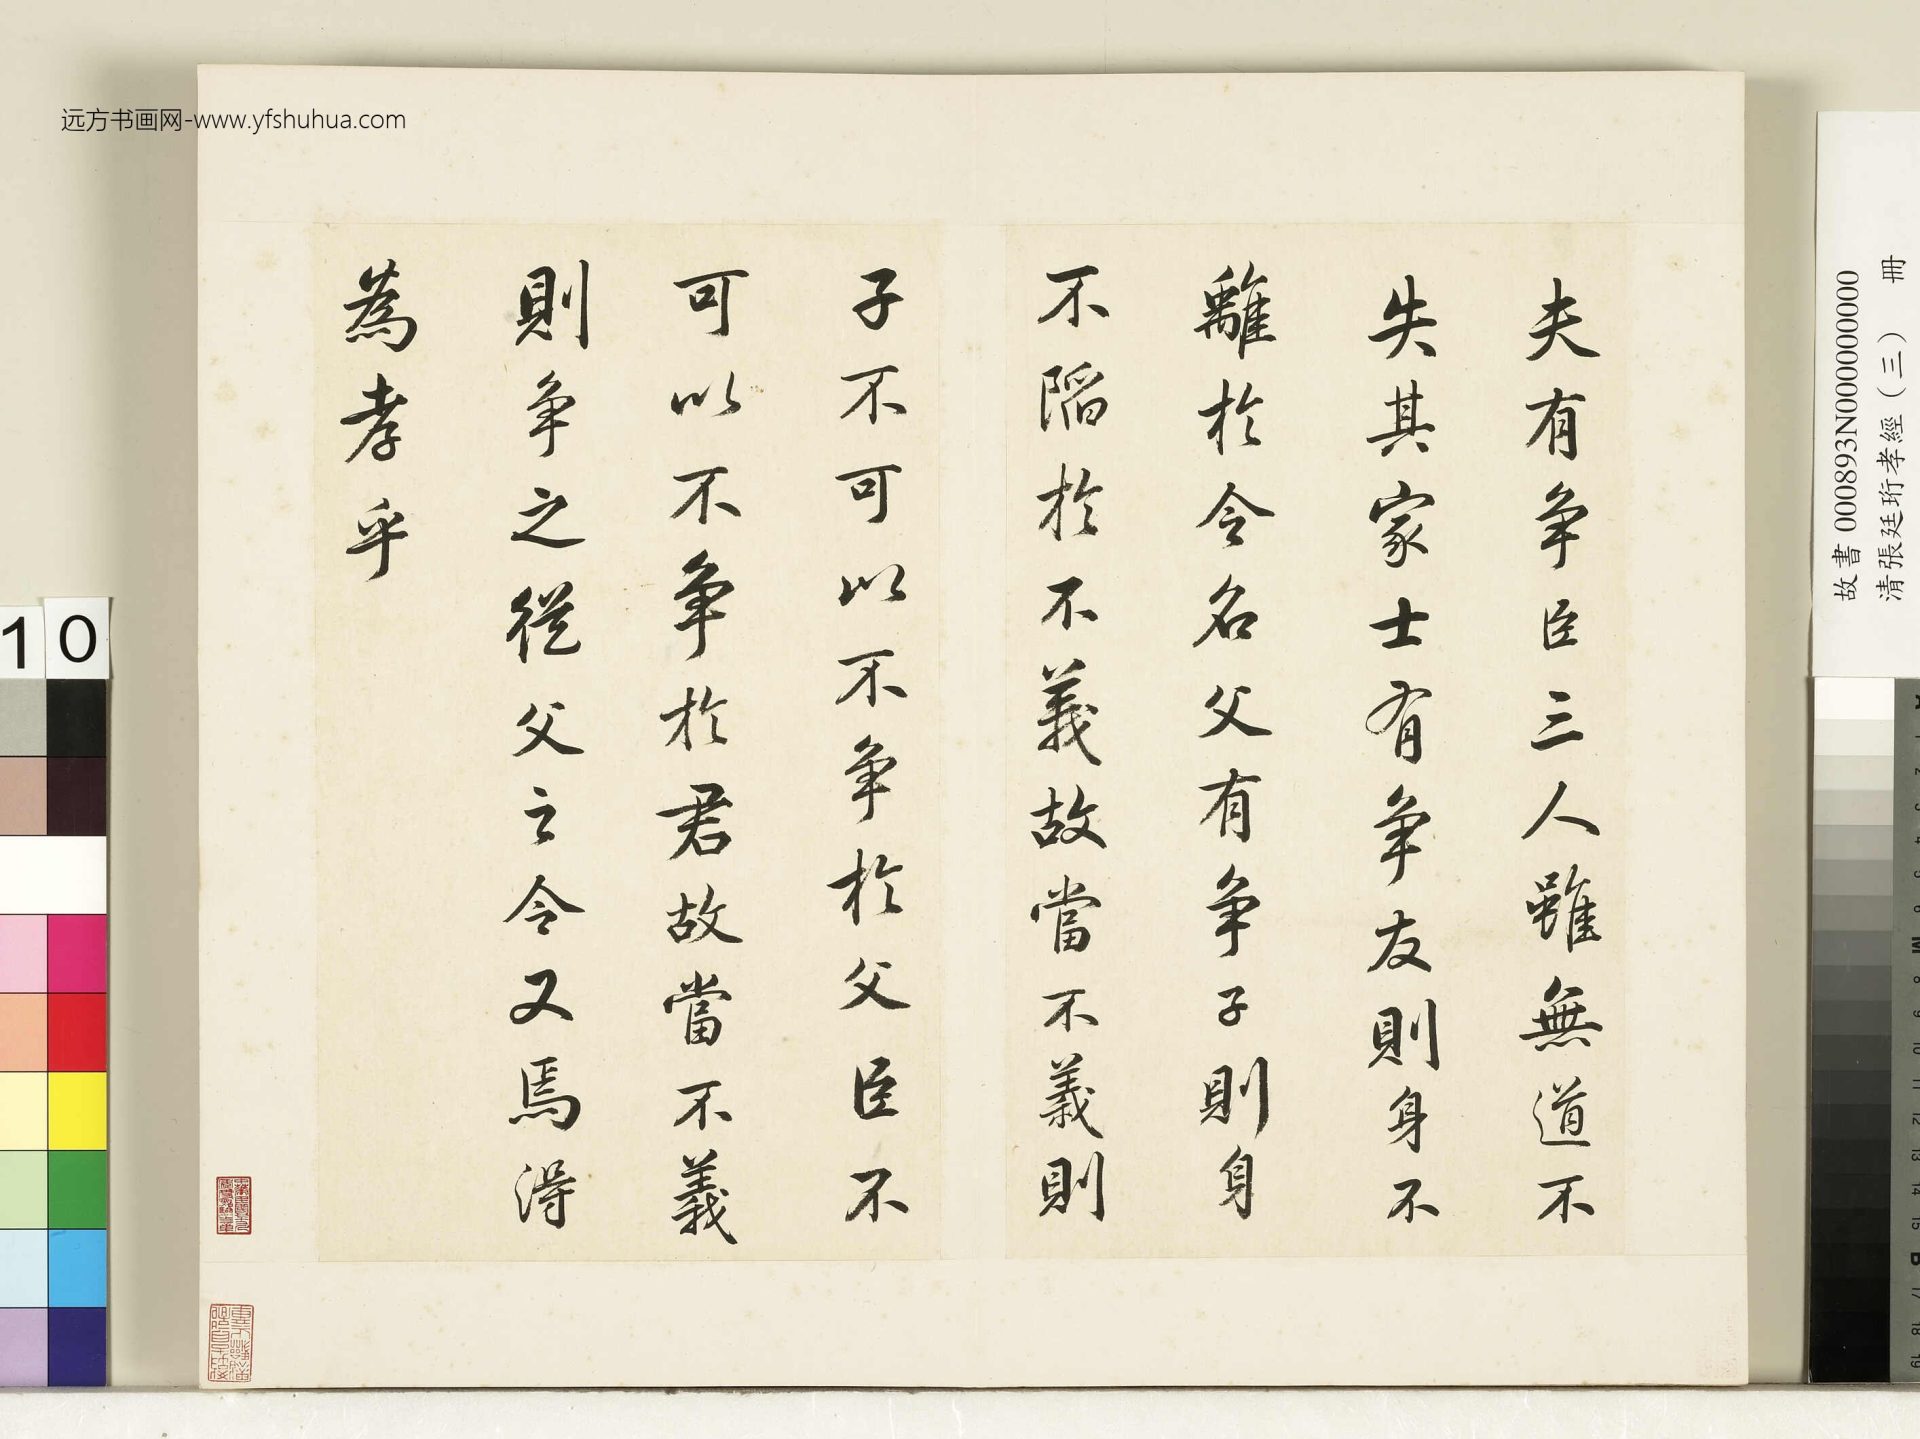 远方书画网-www.yfshuhua.com
夫有争臣三人雖無道不
失其家士有争友則身不
離於令名父有争子則身
不陷於不義故當不義則
子不可以不争於父臣不
可以不争於君故當不義
則争之從父之令又焉得
為孝乎
故書 000893N000000000
清張廷珩孝經（三） 冊
10